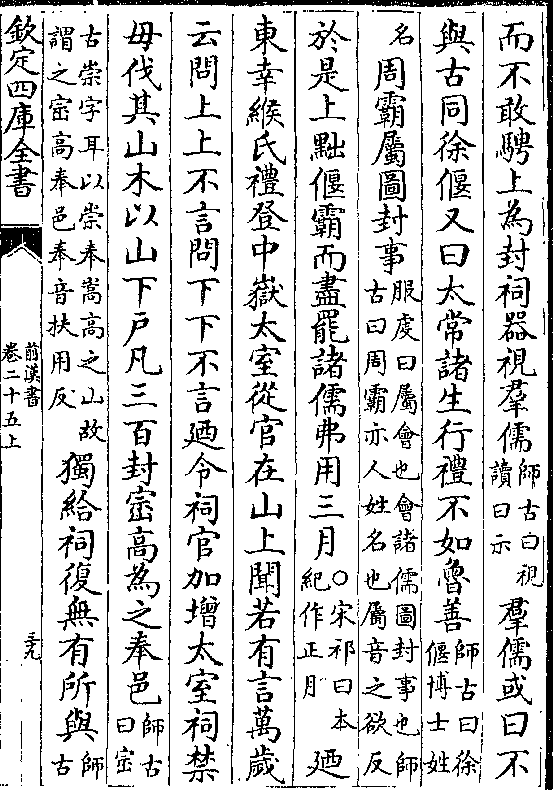 而不敢騁上為封祠器視羣儒師古曰視讀曰示羣儒或曰不
與古同徐偃又曰太常諸生行禮不如魯善師古曰徐偃博士姓
名周霸屬圖封事服虔曰屬會也會諸儒圖封事也師古曰周霸亦人姓名也屬音之欲反
於是上黜偃霸而盡罷諸儒弗用三月○宋祁曰本紀作正月廼
東幸緱氏禮登中嶽太室從官在山上聞若有言萬歲
云問上上不言問下下不言廼令祠官加增太室祠禁
毋伐其山木以山下戶凡三百封崈高為之奉邑師古曰崈
古崇字耳以崇奉嵩高之山故謂之崈高奉邑奉音扶用反獨給祠復無有所與師古
欽定四庫全書
前漢書
卷二十五上
三九